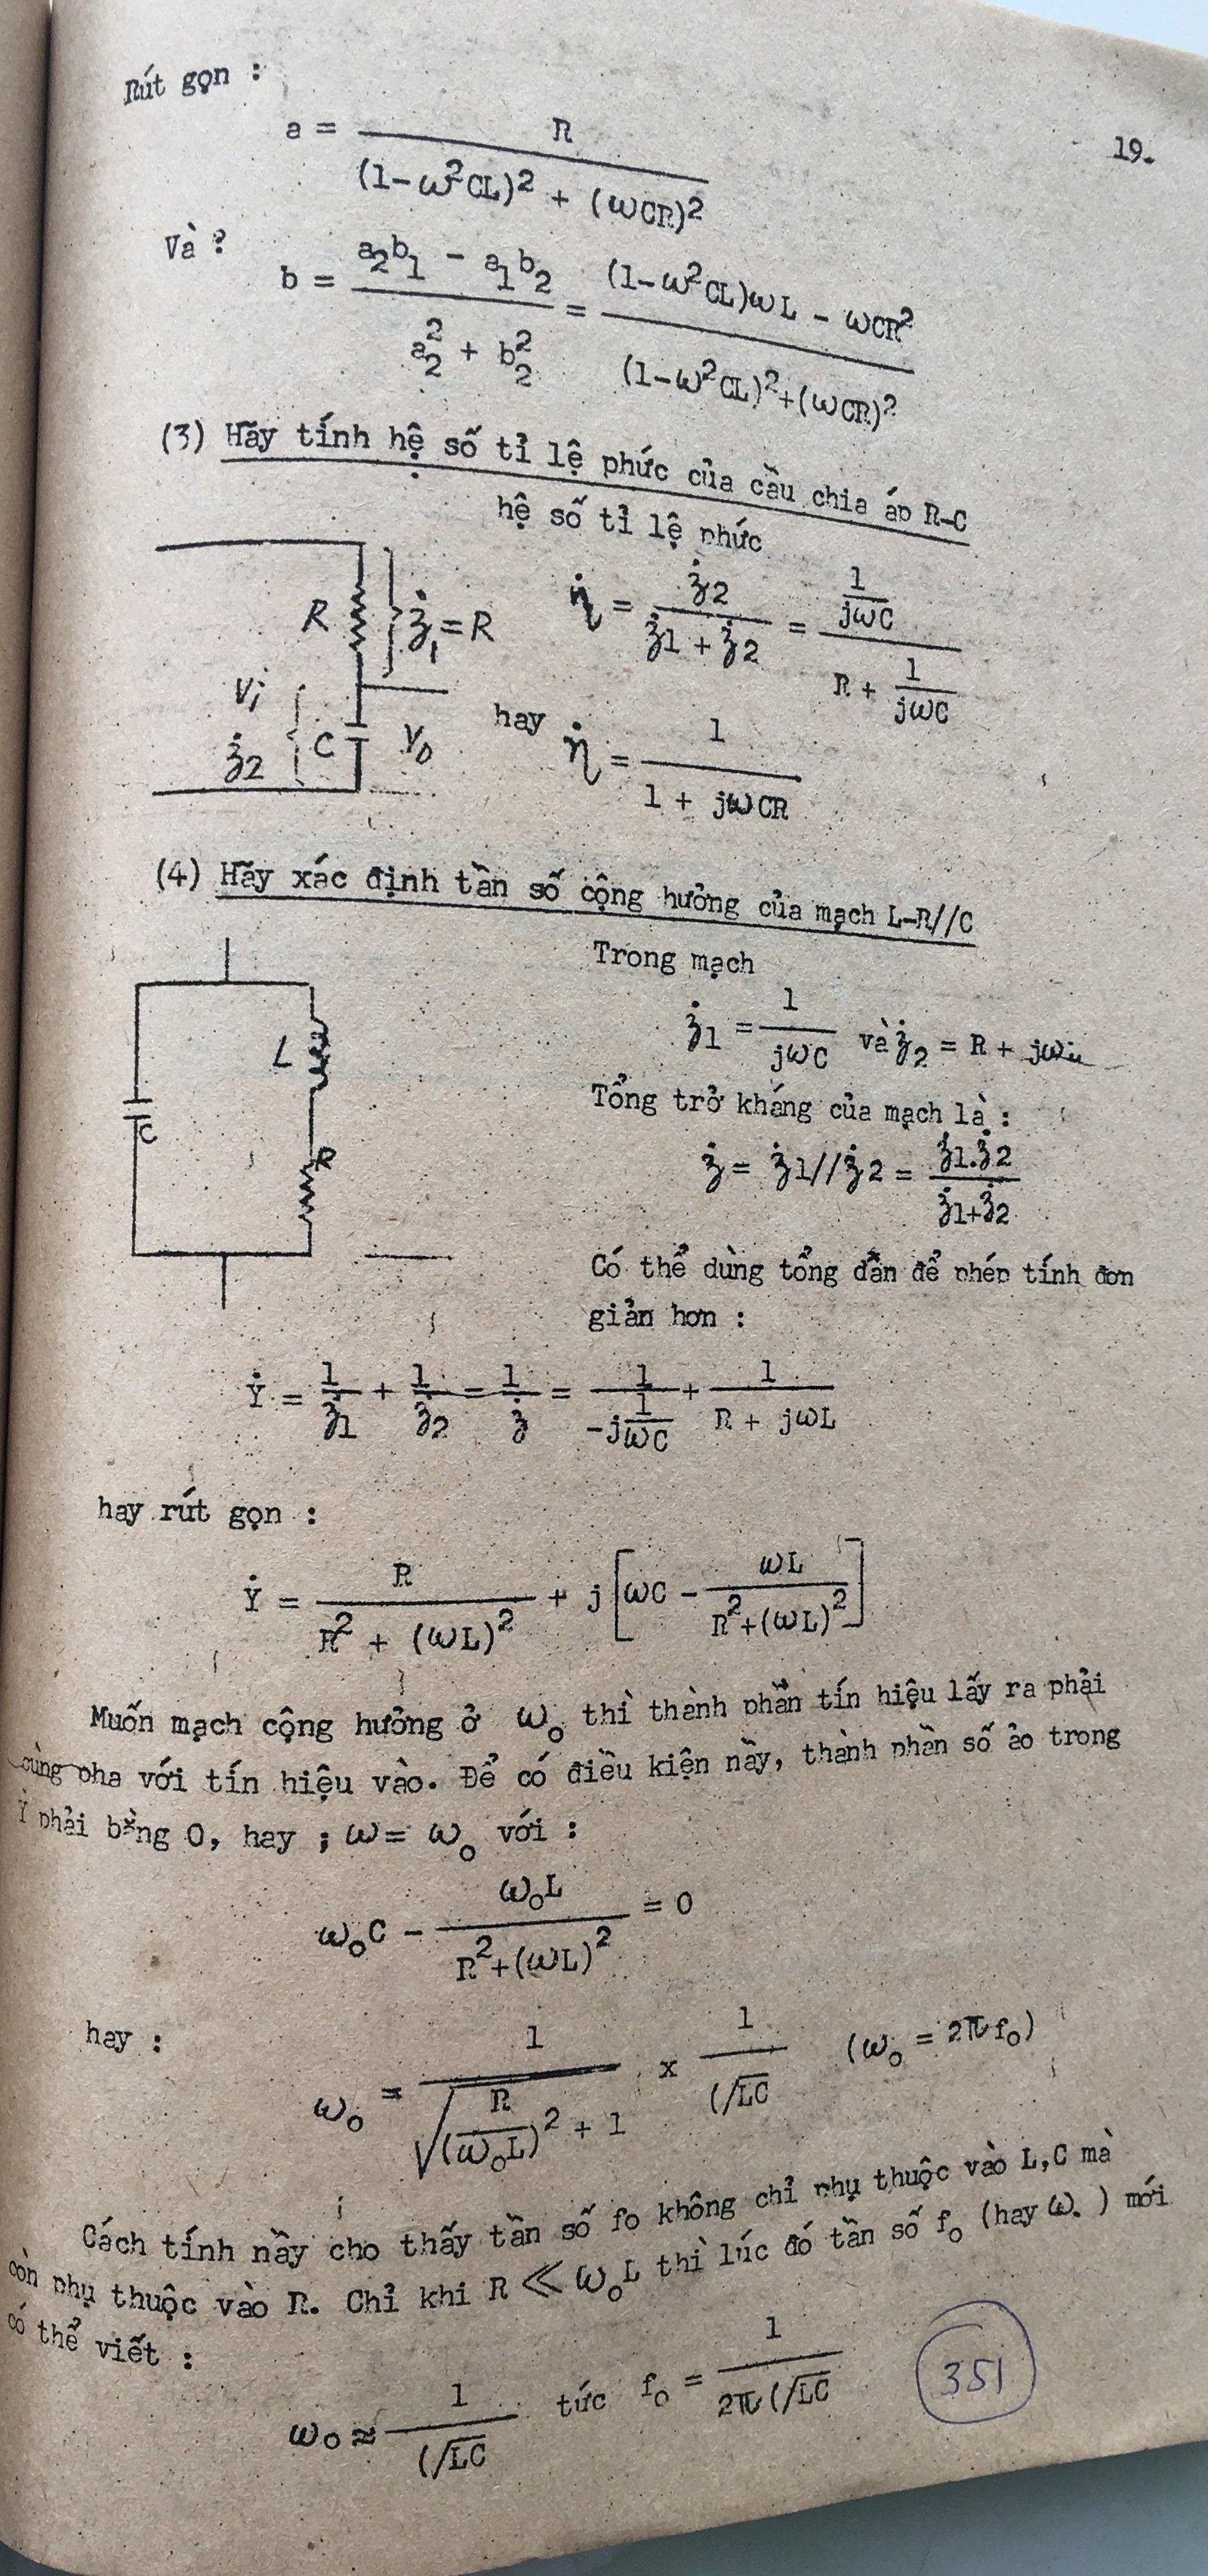 Rút gọn :
19.
a = R / ((1-ω²CL)² + (ωCR)²)
Và ?
b = (a₂b₁ - a₁b₂) / (a₂² + b₂²) = ((1-ω²CL)ωL - ωCR²) / ((1-ω²CL)²+(ωCR)²)
(3) Hãy tính hệ số tỉ lệ phức của cầu chia áp R-C
hệ số tỉ lệ phức
R
ż₁ = R
Vi
ż2
C
Vo
η̇ = ż2 / (ż1 + ż2) = (1/jωC) / (R + 1/jωC)
hay η̇ = 1 / (1 + jωCR)
(4) Hãy xác định tần số cộng hưởng của mạch L-R//C
L
C
R
Trong mạch
ż1 = 1/jωC và ż2 = R +
Tổng trở kháng của mạch là :
ż = ż1//ż2 = ż1.ż2 / (ż1+ż2)
Có thể dùng tổng dẫn để phép tính đơn
giản hơn :
Ẏ = 1/ż1 + 1/ż2 = 1/ż = 1/(-j 1/ωC) + 1/(R + jωL)
hay rút gọn :
Ẏ = R / (R² + (ωL)²) + j [ωC - ωL / (R²+(ωL)²)]
Muốn mạch cộng hưởng ở ω₀ thì thành phần tín hiệu lấy ra phải
cùng pha với tín hiệu vào. Để có điều kiện nầy, thành phần số ảo trong
Ẏ phải bằng 0, hay ; ω = ω₀ với :
ω₀C - ω₀L / (R²+(ωL)²) = 0
hay :
ω₀ = 1 / √((R/ω₀L)² + 1) x 1 / (√LC (ω₀ = 2πf₀)
Cách tính nầy cho thấy tần số fo không chỉ phụ thuộc vào L,C mà
còn phụ thuộc vào R. Chỉ khi R ≪ ω₀L thì lúc đó tần số f₀ (hay ω. ) mới
có thể viết :
ω₀ ≈ 1 / (√LC tức f₀ = 1 / 2π(√LC
351